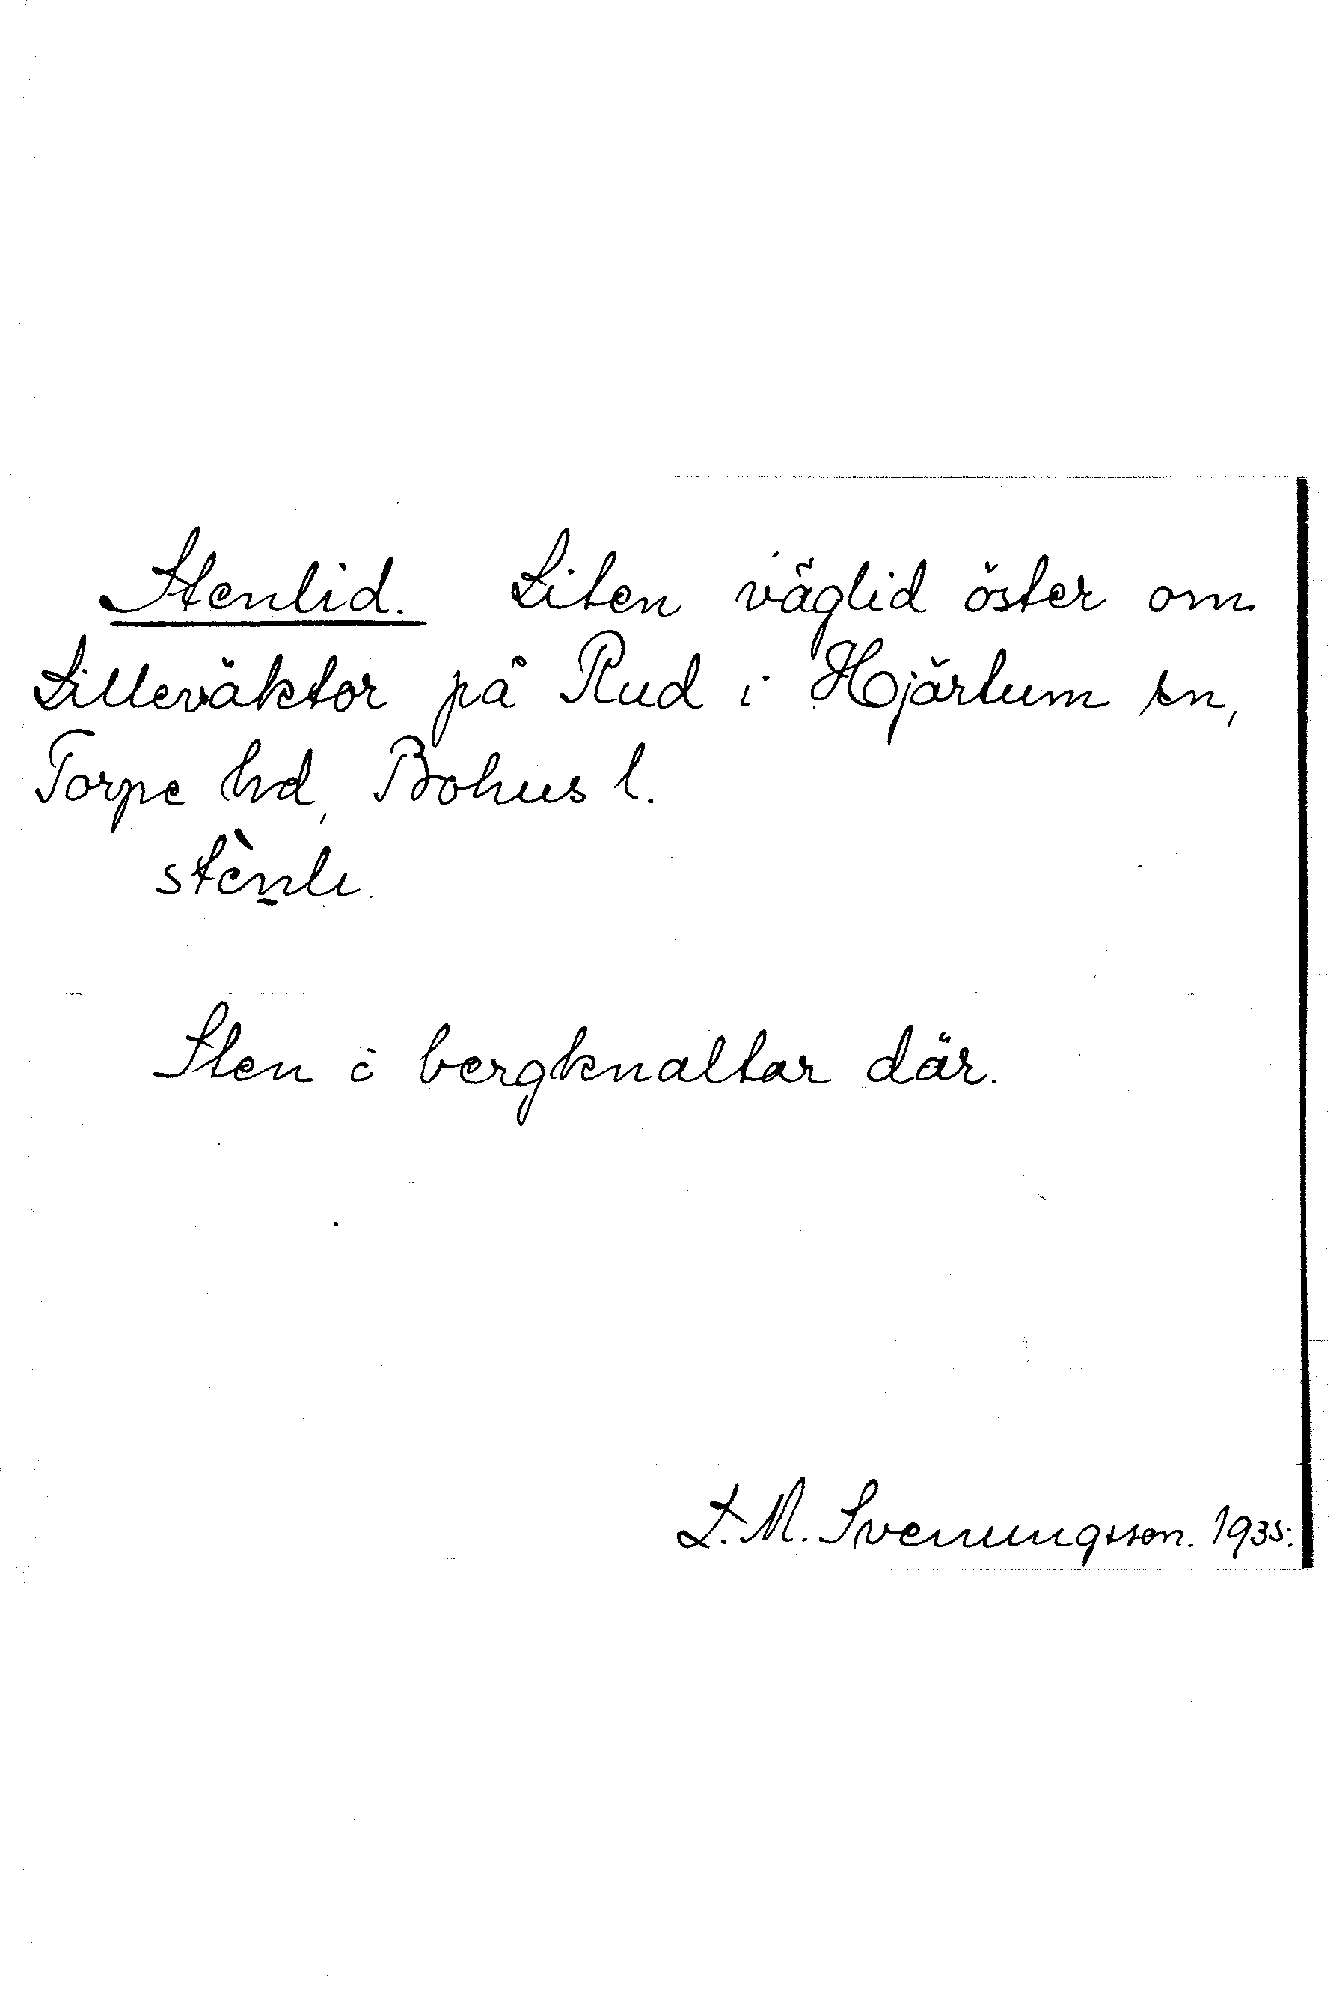 Stenlid. Liten väglid öster om
Lilleväktor på Rud i Hjärtum sn,
Torpe hd, Bohus l.
stènlı.
Sten o bergknaltar där.
L. M. Svenungsson. 1935.